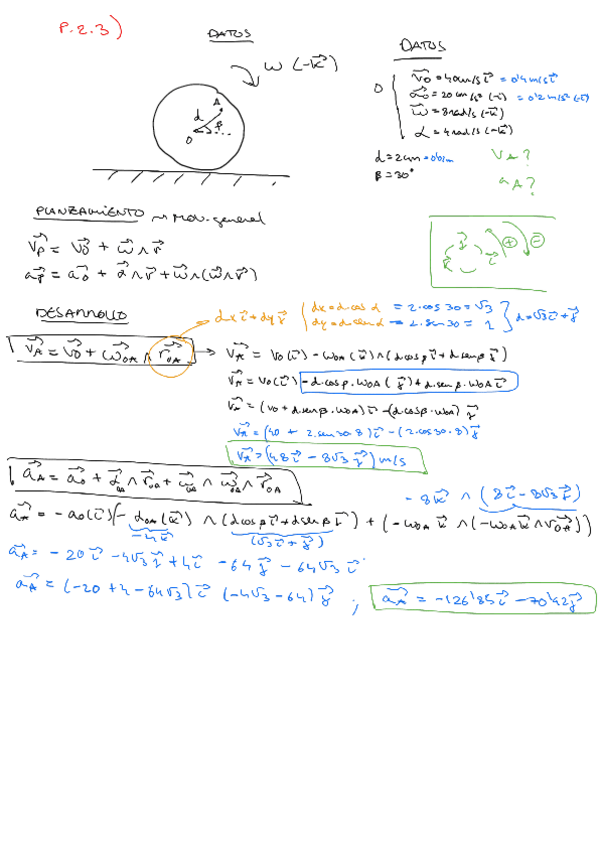 P.2.3)
DATOS
ω (-k⃗)
A
d
β
O
DATOS
O
v⃗o = 40cm/s i⃗ = 0'4m/s i⃗
a⃗o = 20cm/s² (-i⃗) = 0'2m/s² (-i⃗)
ω⃗ = 8rad/s (-k⃗)
α = 4rad/s (-k⃗)
d = 2cm = 0'02m
β = 30°
vA?
aA?
PLANTEAMIENTO ~ Mov. general
v⃗p = v⃗o + ω⃗ ∧ r⃗
a⃗p = a⃗o + α⃗ ∧ r⃗ + ω⃗ ∧ (ω⃗ ∧ r⃗)
j⃗
k⃗ i⃗
+ -
DESARROLLO
dx i⃗ + dy j⃗
dx = d.cos α = 2.cos 30 = √3
dy = d.sen α = 2.sen 30 = 1
d = √3 i⃗ + j⃗
v⃗A = v⃗o + ω⃗OA ∧ r⃗OA
v⃗A = vo(i⃗) - ωOA (k⃗) ∧ (d cosβ i⃗ + d senβ j⃗)
v⃗A = vo(i⃗) - d.cosβ.ωOA (j⃗) + d senβ.ωOA i⃗
v⃗A = (vo + d senβ.ωOA) i⃗ - (d.cosβ.ωOA) j⃗
v⃗A = (40 + 2.sen30.8) i⃗ - (2.cos30.8) j⃗
v⃗A = (48 i⃗ - 8√3 j⃗) m/s
a⃗A = a⃗o + α⃗OA ∧ r⃗OA + ω⃗OA ∧ ω⃗OA ∧ r⃗OA
-8k⃗ ∧ (8i⃗ - 8√3 j⃗)
a⃗A = -ao(i⃗) (-αOA (k⃗) ∧ (d cosβ i⃗ + d senβ j⃗) + (-ωOA k⃗ ∧ (-ωOA k⃗ ∧ r⃗OA))
-4k⃗
(√3 i⃗ + j⃗)
a⃗A = -20 i⃗ - 4√3 j⃗ + 4i⃗ - 64 j⃗ - 64√3 i⃗
a⃗A = (-20 + 4 - 64√3) i⃗ (-4√3 - 64) j⃗ ; a⃗A = -126'85 i⃗ - 70'92 j⃗